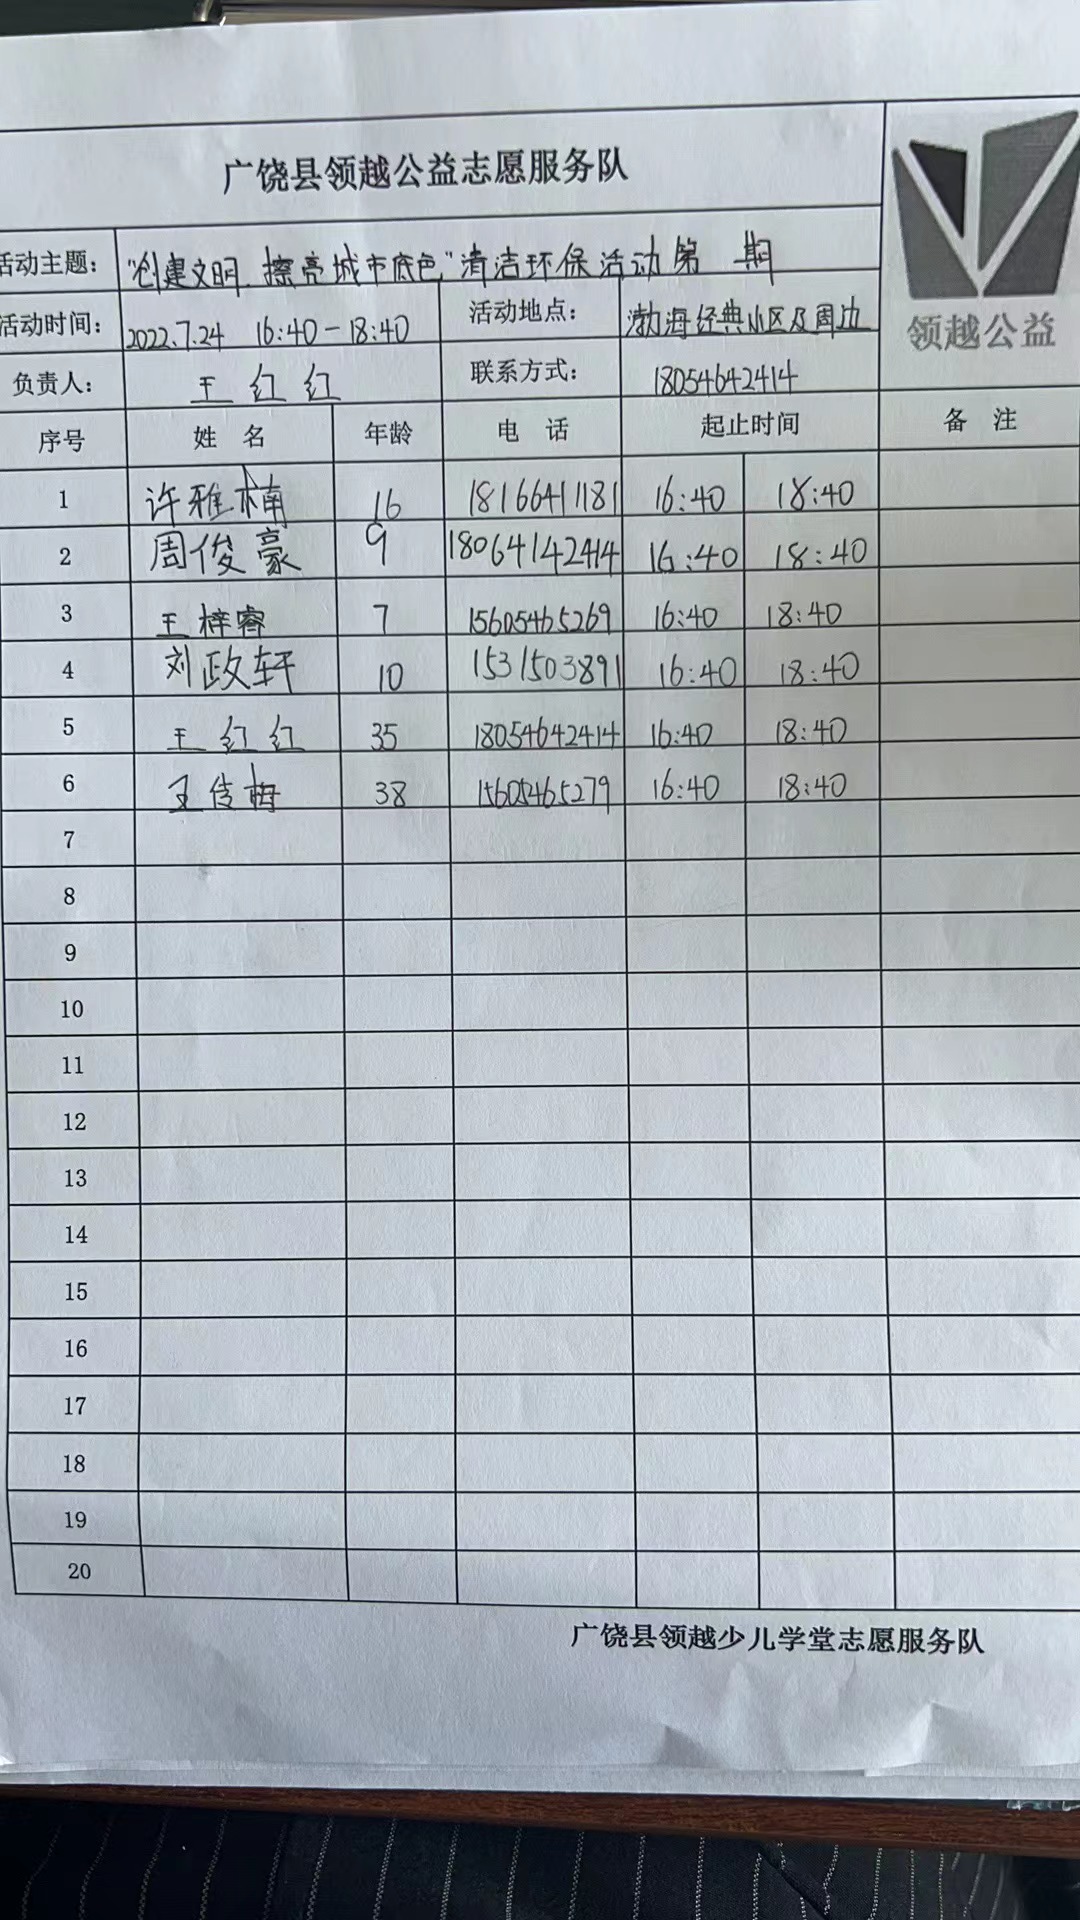 广饶县领越公益志愿服务队
领越公益
活动主题： "创建文明.擦亮城市底色"清洁环保活动第 期
活动时间： 2022.7.24 16:40-18:40 活动地点： 渤海经典小区及周边
负责人： 王红红 联系方式： 18054642414
序号 姓 名 年龄 电 话 起止时间 备 注
1 许雅楠 16 18166411181 16:40 18:40
2 周俊豪 9 18064142414 16:40 18:40
3 王梓睿 7 15605465269 16:40 18:40
4 刘政轩 10 1531503891 16:40 18:40
5 王红红 35 18054642414 16:40 18:40
6 王 梅 38 15605465279 16:40 18:40
7
8
9
10
11
12
13
14
15
16
17
18
19
20
广饶县领越少儿学堂志愿服务队